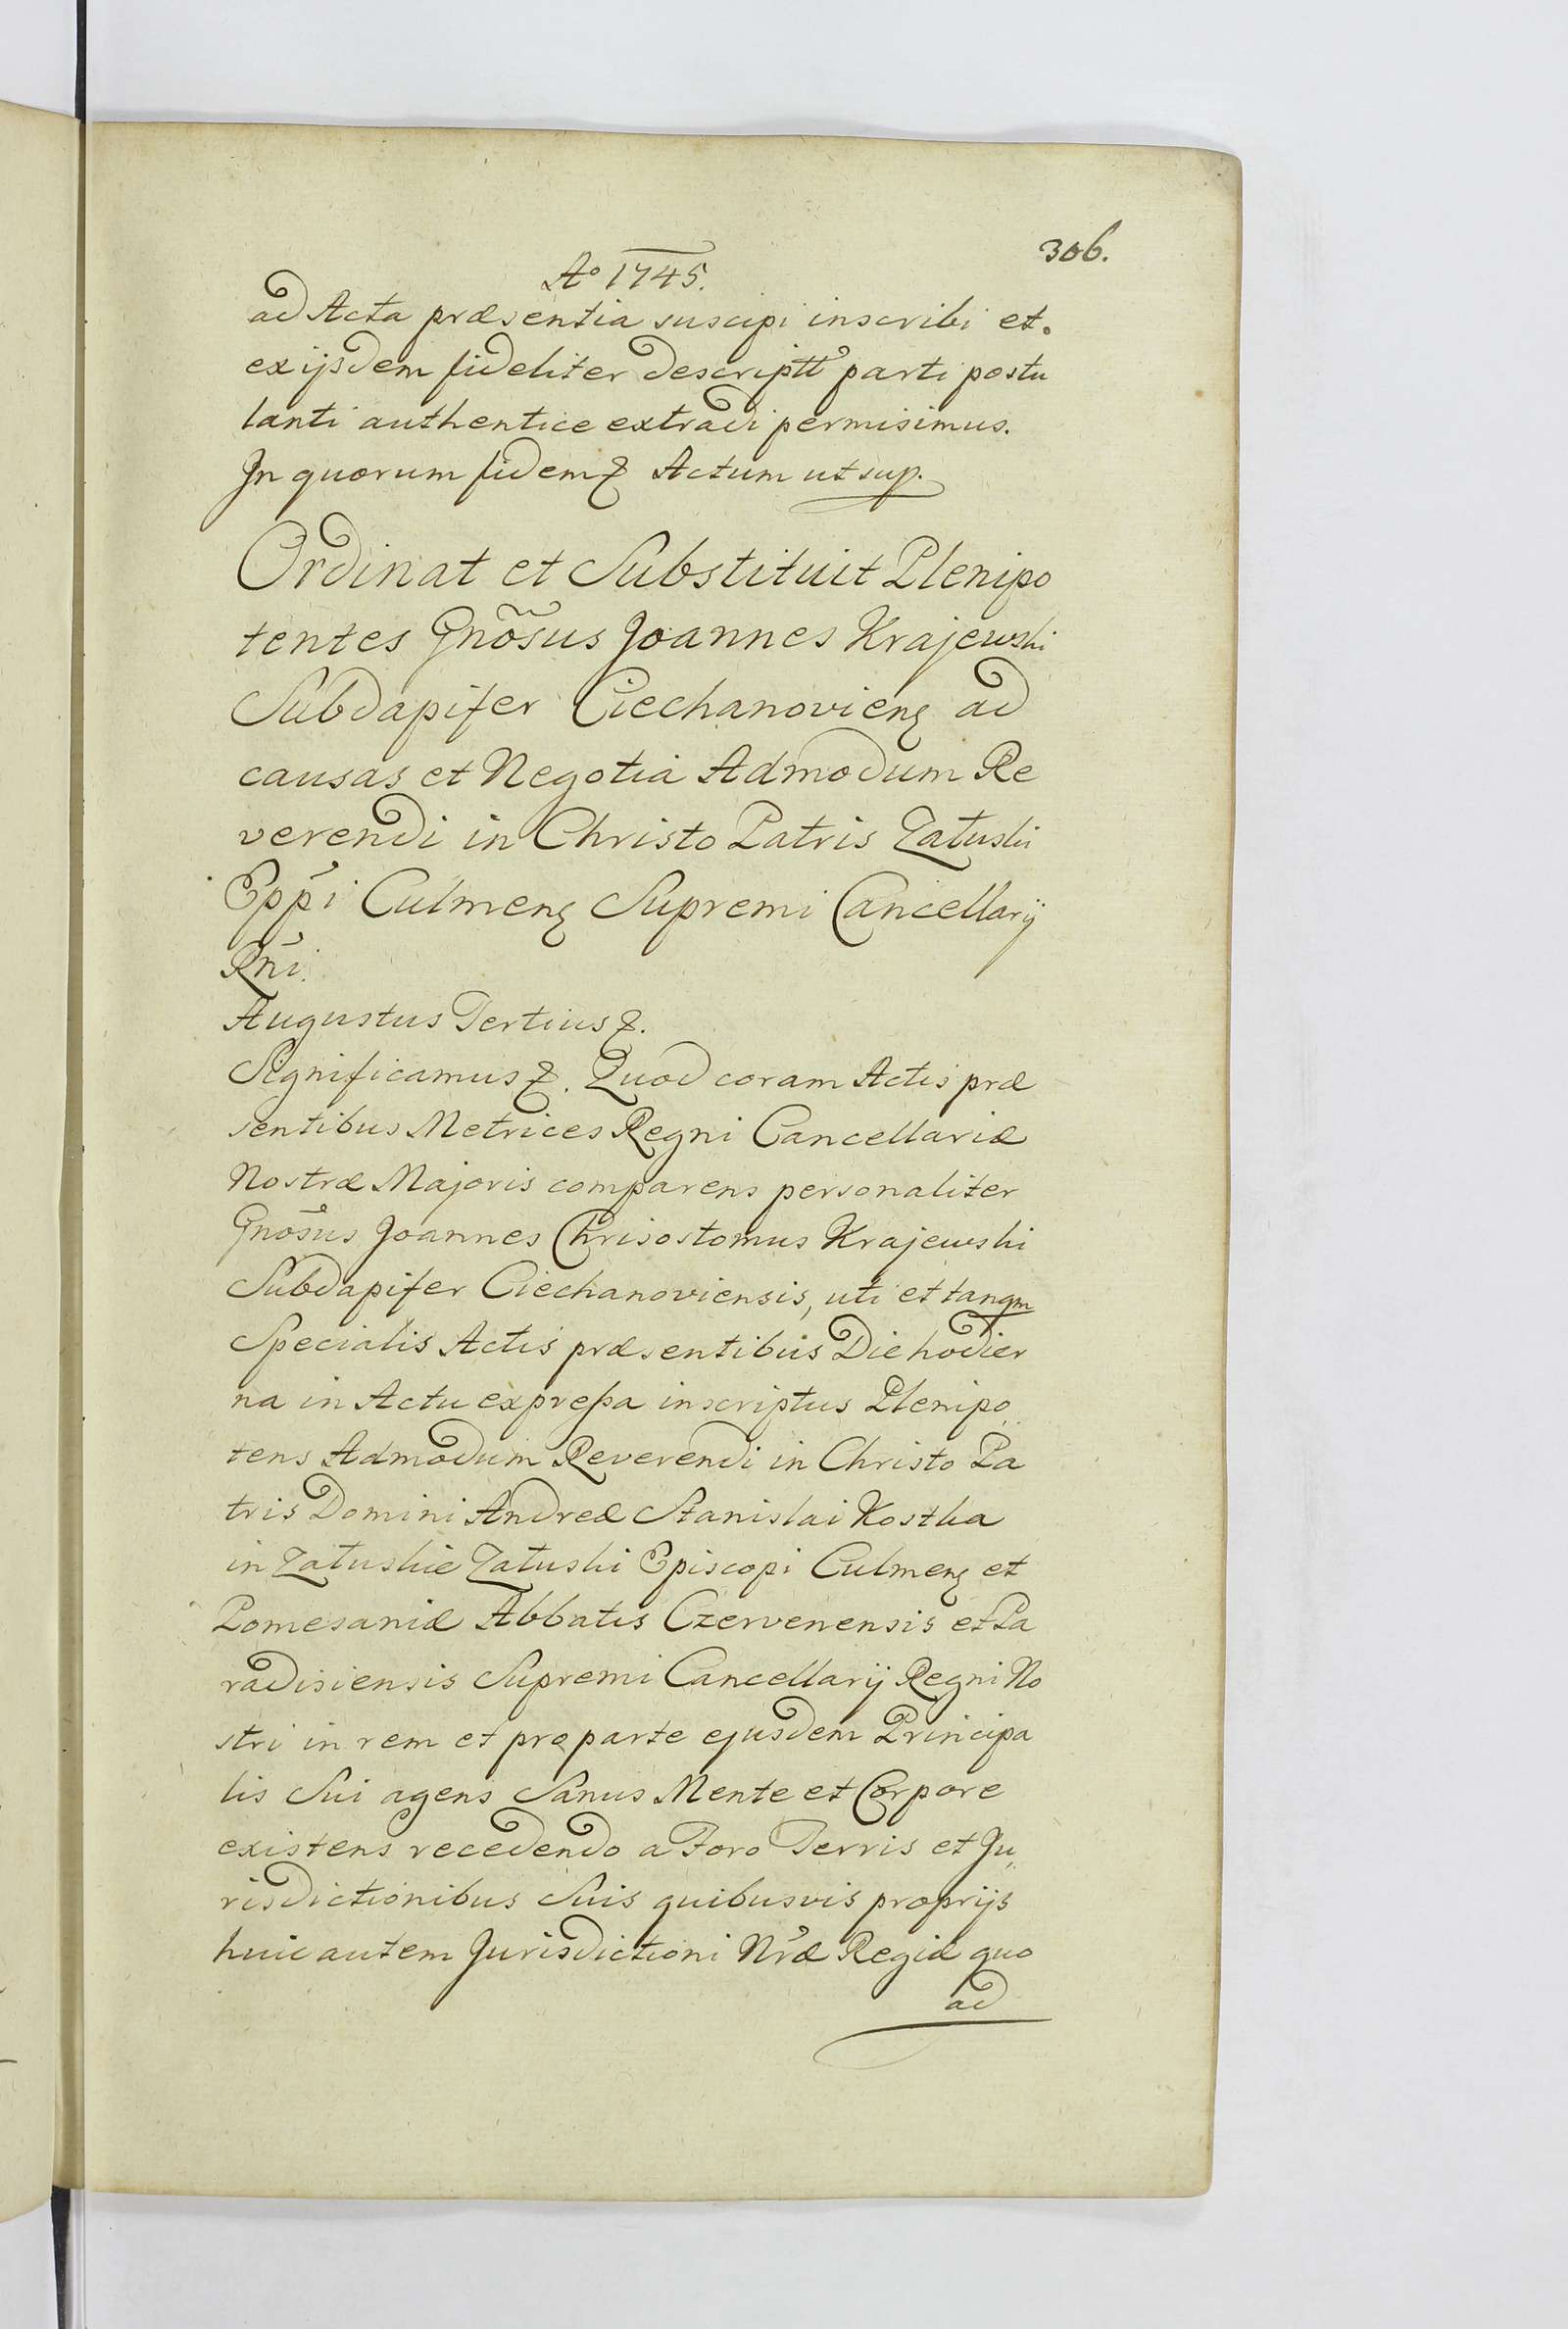 306.
Ao 1745.
ad Acta præsentia suscipi inscribi et.
ex ijsdem fideliter descriptt parti postu
lanti authentice extradi permisimus.
In quorum fidem & Actum ut sup.
Ordinat et Substituit Plenipo
tentes Gnõsus Joannes Krajewski
Subdapifer Ciechanovieng ad
causas et Negotia Admodum Re
verendi in Christo Patris Załuski
Eppi Culmeng Supremi Cancellarij
Rni.
Augustus Tertius &.
Significamus &. Quod coram Actis præ
sentibus Metrices Regni Cancellariæ
Nostræ Majoris comparens personaliter
Gnõsus Joannes Chrisostomus Krajewski
Subdapifer Ciechanoviensis, uti et tanqm
Specialis Actis præsentibus Die hodier
na in Actu expreßa inscriptus Plenipo
tens Admodum Reverendi in Christo Pa
tris Domini Andreæ Stanislai Kostka
in Załuskie Załuski Episcopi Culmeng et
Pomesaniæ Abbatis Czervenensis et Pa
radisiensis Supremi Cancellarij Regni No
stri in rem et pro parte ejusdem Principa
lis Sui agens Sanus Mente et Corpore
existens recedendo a Foro Terris et Ju„
risdictionibus Suis quibusvis proprijs
huic autem Jurisdictioni Nræ Regiæ quo
ad